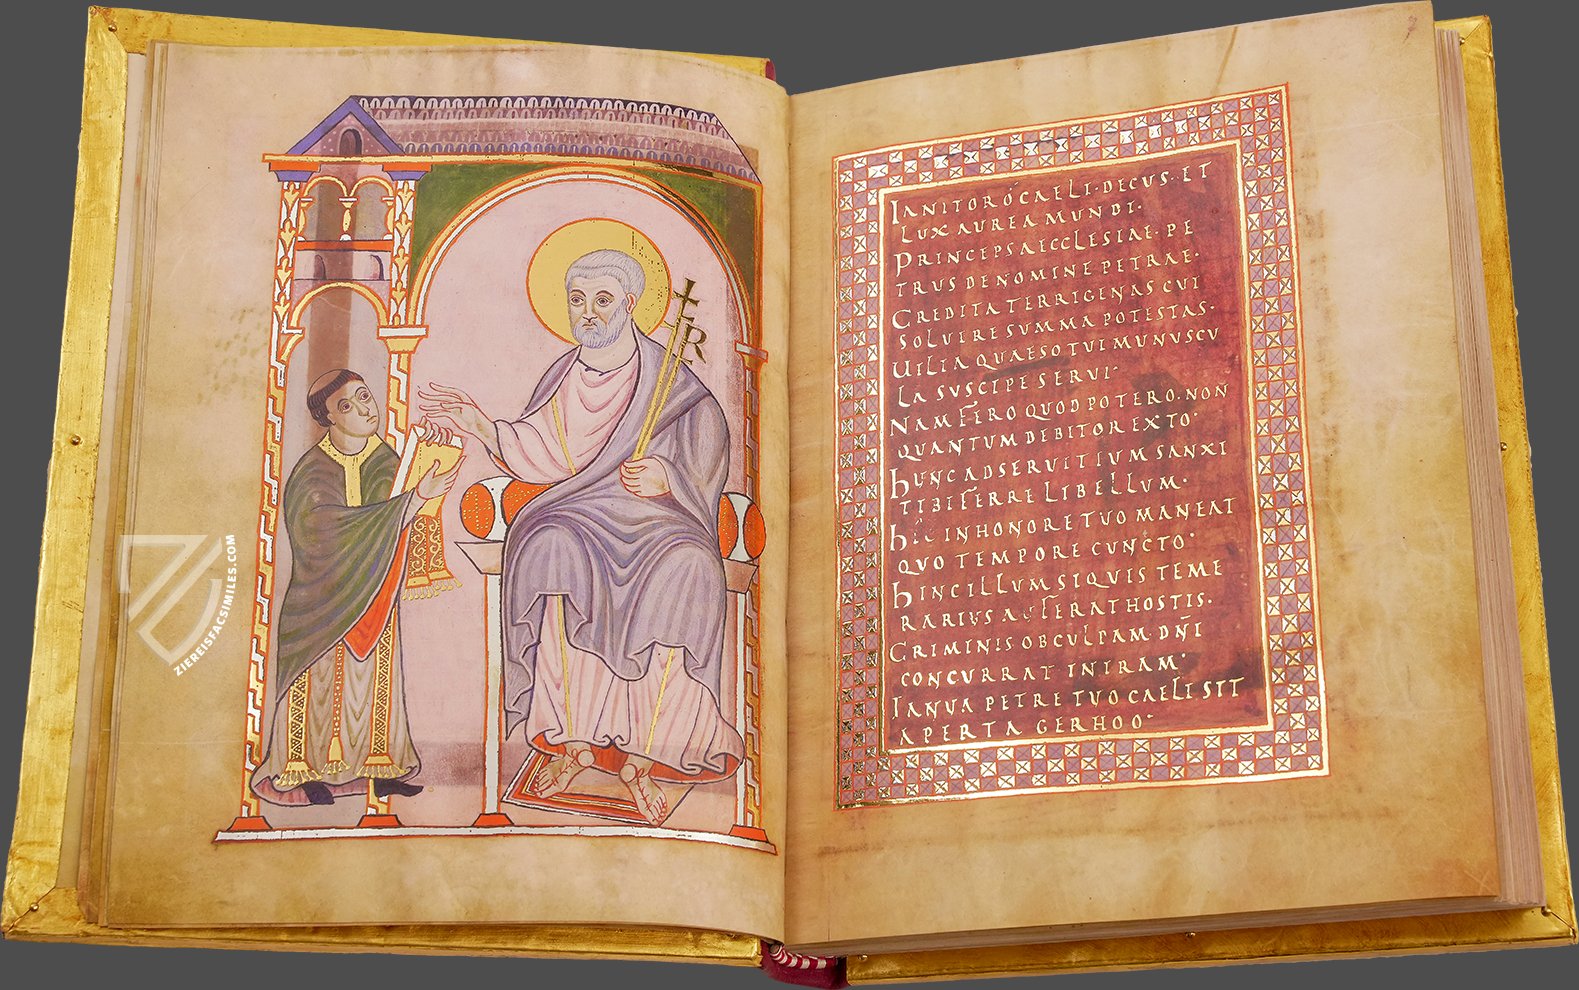 ZIEREISFACSIMILES.COM
IANITOR Ó CAELI · DECUS · ET
LUX AUREA MUNDI ·
PRINCEPS AECCLESIAE · PE
TRUS DE NOMINE PETRAE ·
CREDITA TERRIGENAS CUI
SOLUIRE SUMMA POTESTAS ·
UILIA QUAESO TUI MUNUSCU
LA SUSCIPE SERVI ·
NAM FERO QUOD POTERO · NON
QUANTUM DEBITOR EXTO ·
HUNC AD SERVITIUM SANXI
TIBI FERRE LIBELLUM ·
HIC IN HONORE TUO MANEAT
QUO TEMPORE CUNCTO ·
HINC ILLUM SI QUIS TEME
RARIUS AUFERAT HOSTIS ·
CRIMINIS OB CULPAM · DÑI
CONCURRAT IN IRAM ·
IANUA PETRE TUO CAELI SIT
APERTA GERHOO ·